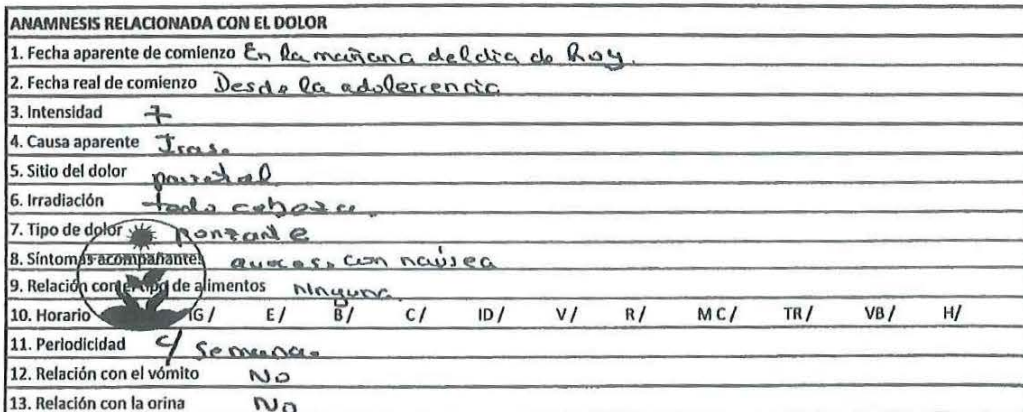 ANAMNESIS RELACIONADA CON EL DOLOR
1. Fecha aparente de comienzo En la mañana del dia de hoy.
2. Fecha real de comienzo Desde la adolescencia
3. Intensidad 7
4. Causa aparente Iras.
5. Sitio del dolor parietal
6. Irradiación toda cabeza.
7. Tipo de dolor punzante
8. Síntomas acompañantes con naúsea
9. Relación con el tipo de alimentos ninguna.
10. Horario IG/ E/ B/ C/ ID/ V/ R/ MC/ TR/ VB/ H/
11. Periodicidad c/ Semana.
12. Relación con el vómito No
13. Relación con la orina No